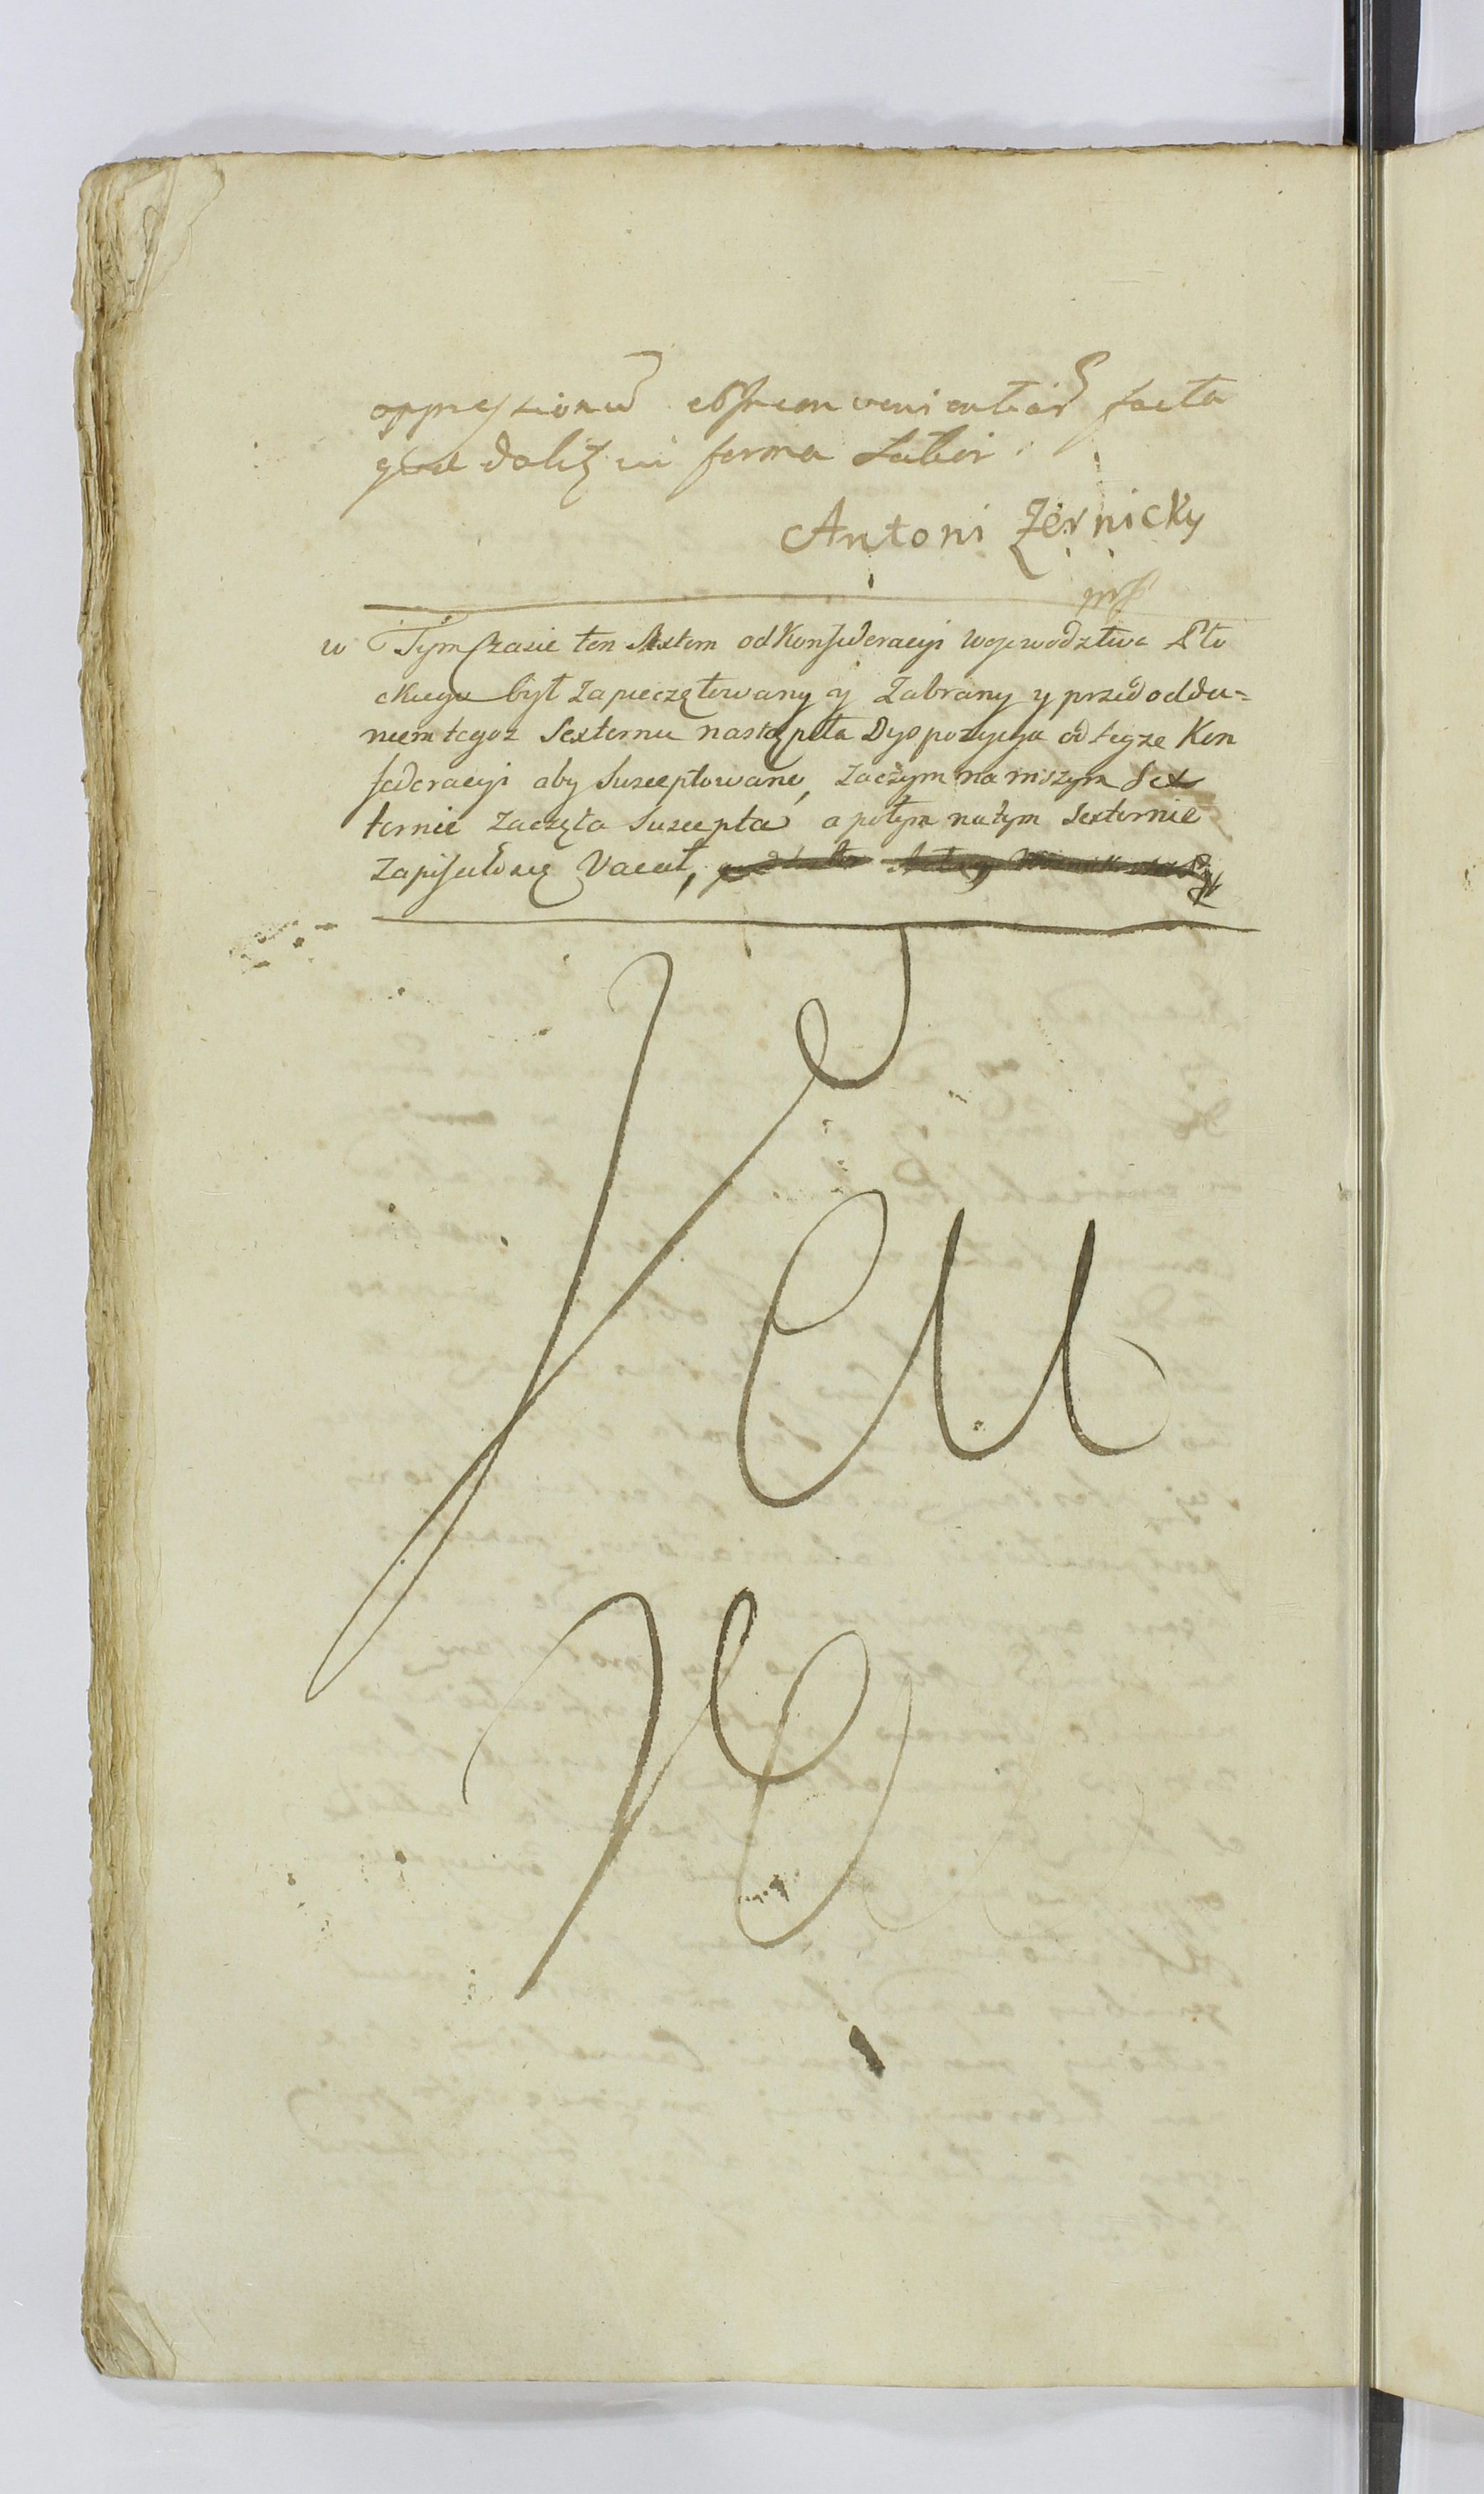 oppressionu et inconvenientiar facta
qua in forma
Antoni Zernicky
mp
w Tym Czasie ten Sextern od Konfederacyi Wojewodztwa Pło
ckiego był zapieczętowany y Zabrany y przed odda=
niem tegoz Sexternu nastąpiła Dyspozycya od teyze Kon
federacyi aby Susceptowano, zaczym na niższym Sex
ternie zaczęta Suscepta a potym na tym Sexternie
zapisało się Vacat,
Va
cu